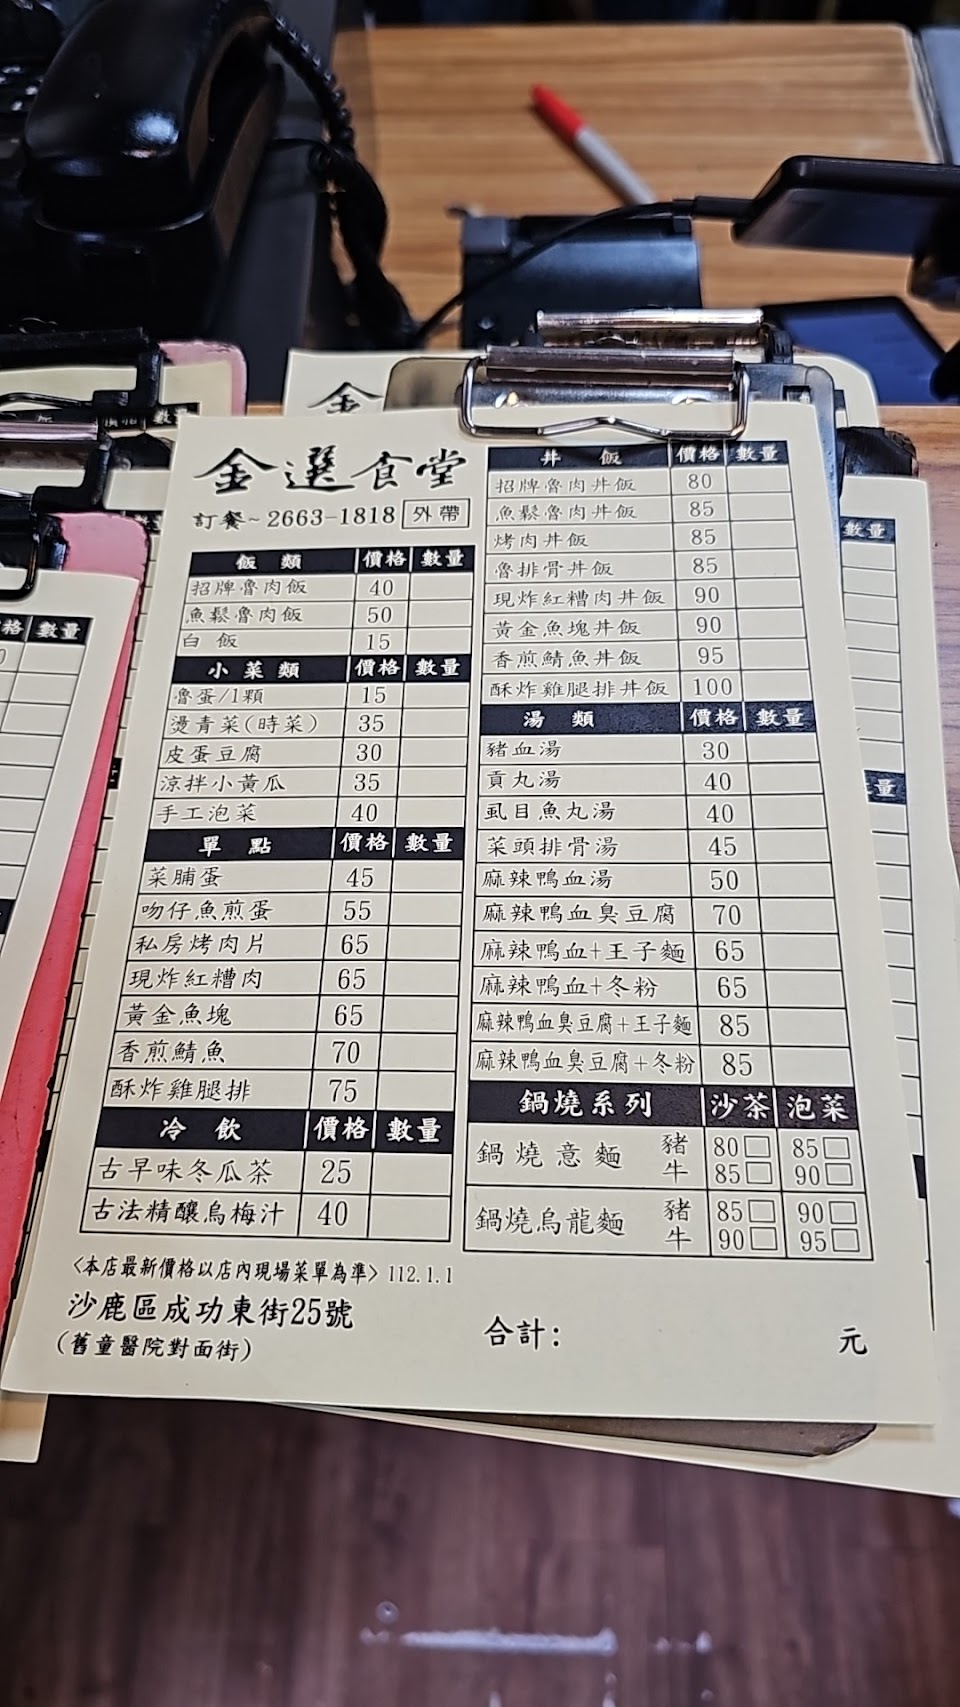 金選食堂
訂餐~2663-1818 外帶
飯類 價格 數量
招牌魯肉飯 40
魚鬆魯肉飯 50
白飯 15
小菜類 價格 數量
魯蛋/1顆 15
燙青菜(時菜) 35
皮蛋豆腐 30
涼拌小黃瓜 35
手工泡菜 40
單點 價格 數量
菜脯蛋 45
吻仔魚煎蛋 55
私房烤肉片 65
現炸紅糟肉 65
黃金魚塊 65
香煎鯖魚 70
酥炸雞腿排 75
冷飲 價格 數量
古早味冬瓜茶 25
古法精釀烏梅汁 40
丼飯 價格 數量
招牌魯肉丼飯 80
魚鬆魯肉丼飯 85
烤肉丼飯 85
魯排骨丼飯 85
現炸紅糟肉丼飯 90
黃金魚塊丼飯 90
香煎鯖魚丼飯 95
酥炸雞腿排丼飯 100
湯類 價格 數量
豬血湯 30
貢丸湯 40
虱目魚丸湯 40
菜頭排骨湯 45
麻辣鴨血湯 50
麻辣鴨血臭豆腐 70
麻辣鴨血+王子麵 65
麻辣鴨血+冬粉 65
麻辣鴨血臭豆腐+王子麵 85
麻辣鴨血臭豆腐+冬粉 85
鍋燒系列 沙茶 泡菜
鍋燒意麵 豬 80□ 85□
牛 85□ 90□
鍋燒烏龍麵 豬 85□ 90□
牛 90□ 95□
〈本店最新價格以店內現場菜單為準〉112.1.1
沙鹿區成功東街25號
(舊童醫院對面街)
合計: 元
金
價格 數量
格 數量
數量
量